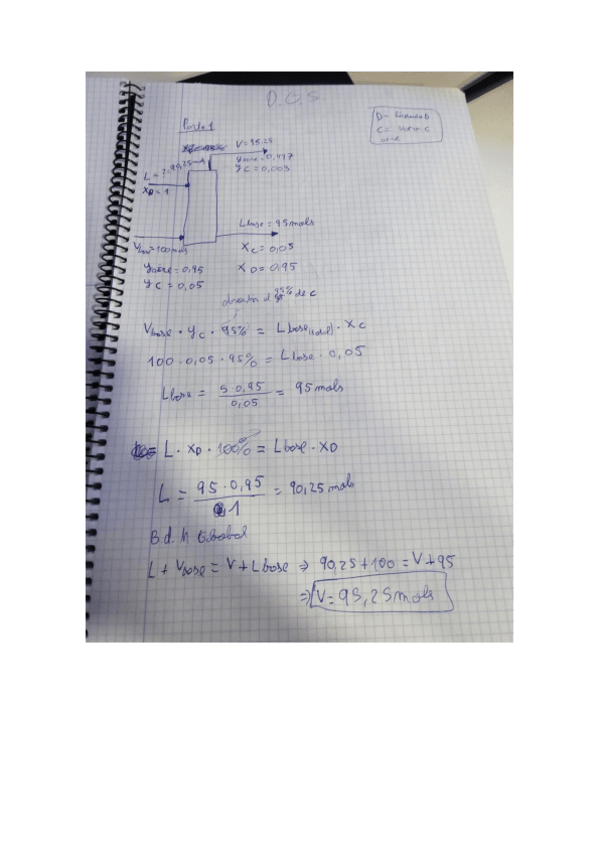 D.G.S.
Parte 1
D=
C=
V=95,25
y aire=0,997
yC=0,003
L=?=90,25 mol
XD=1
Lbase=95mols
Vbase=100mols
XC=0,05
yaire=0,95
XD=0,95
yC=0,05
95% de C
Vbase · yC · 95% = Lbase · XC
100 · 0,05 · 95% = Lbase · 0,05
Lbase = 5·0,95 / 0,05 = 95mols
L · XD · 100% = Lbase · XD
L = 95·0,95 / 1 = 90,25 mols
B.d.M Global
L + Vbase = V + Lbase ⇒ 90,25+100 = V+95
⇒ V= 95,25mols